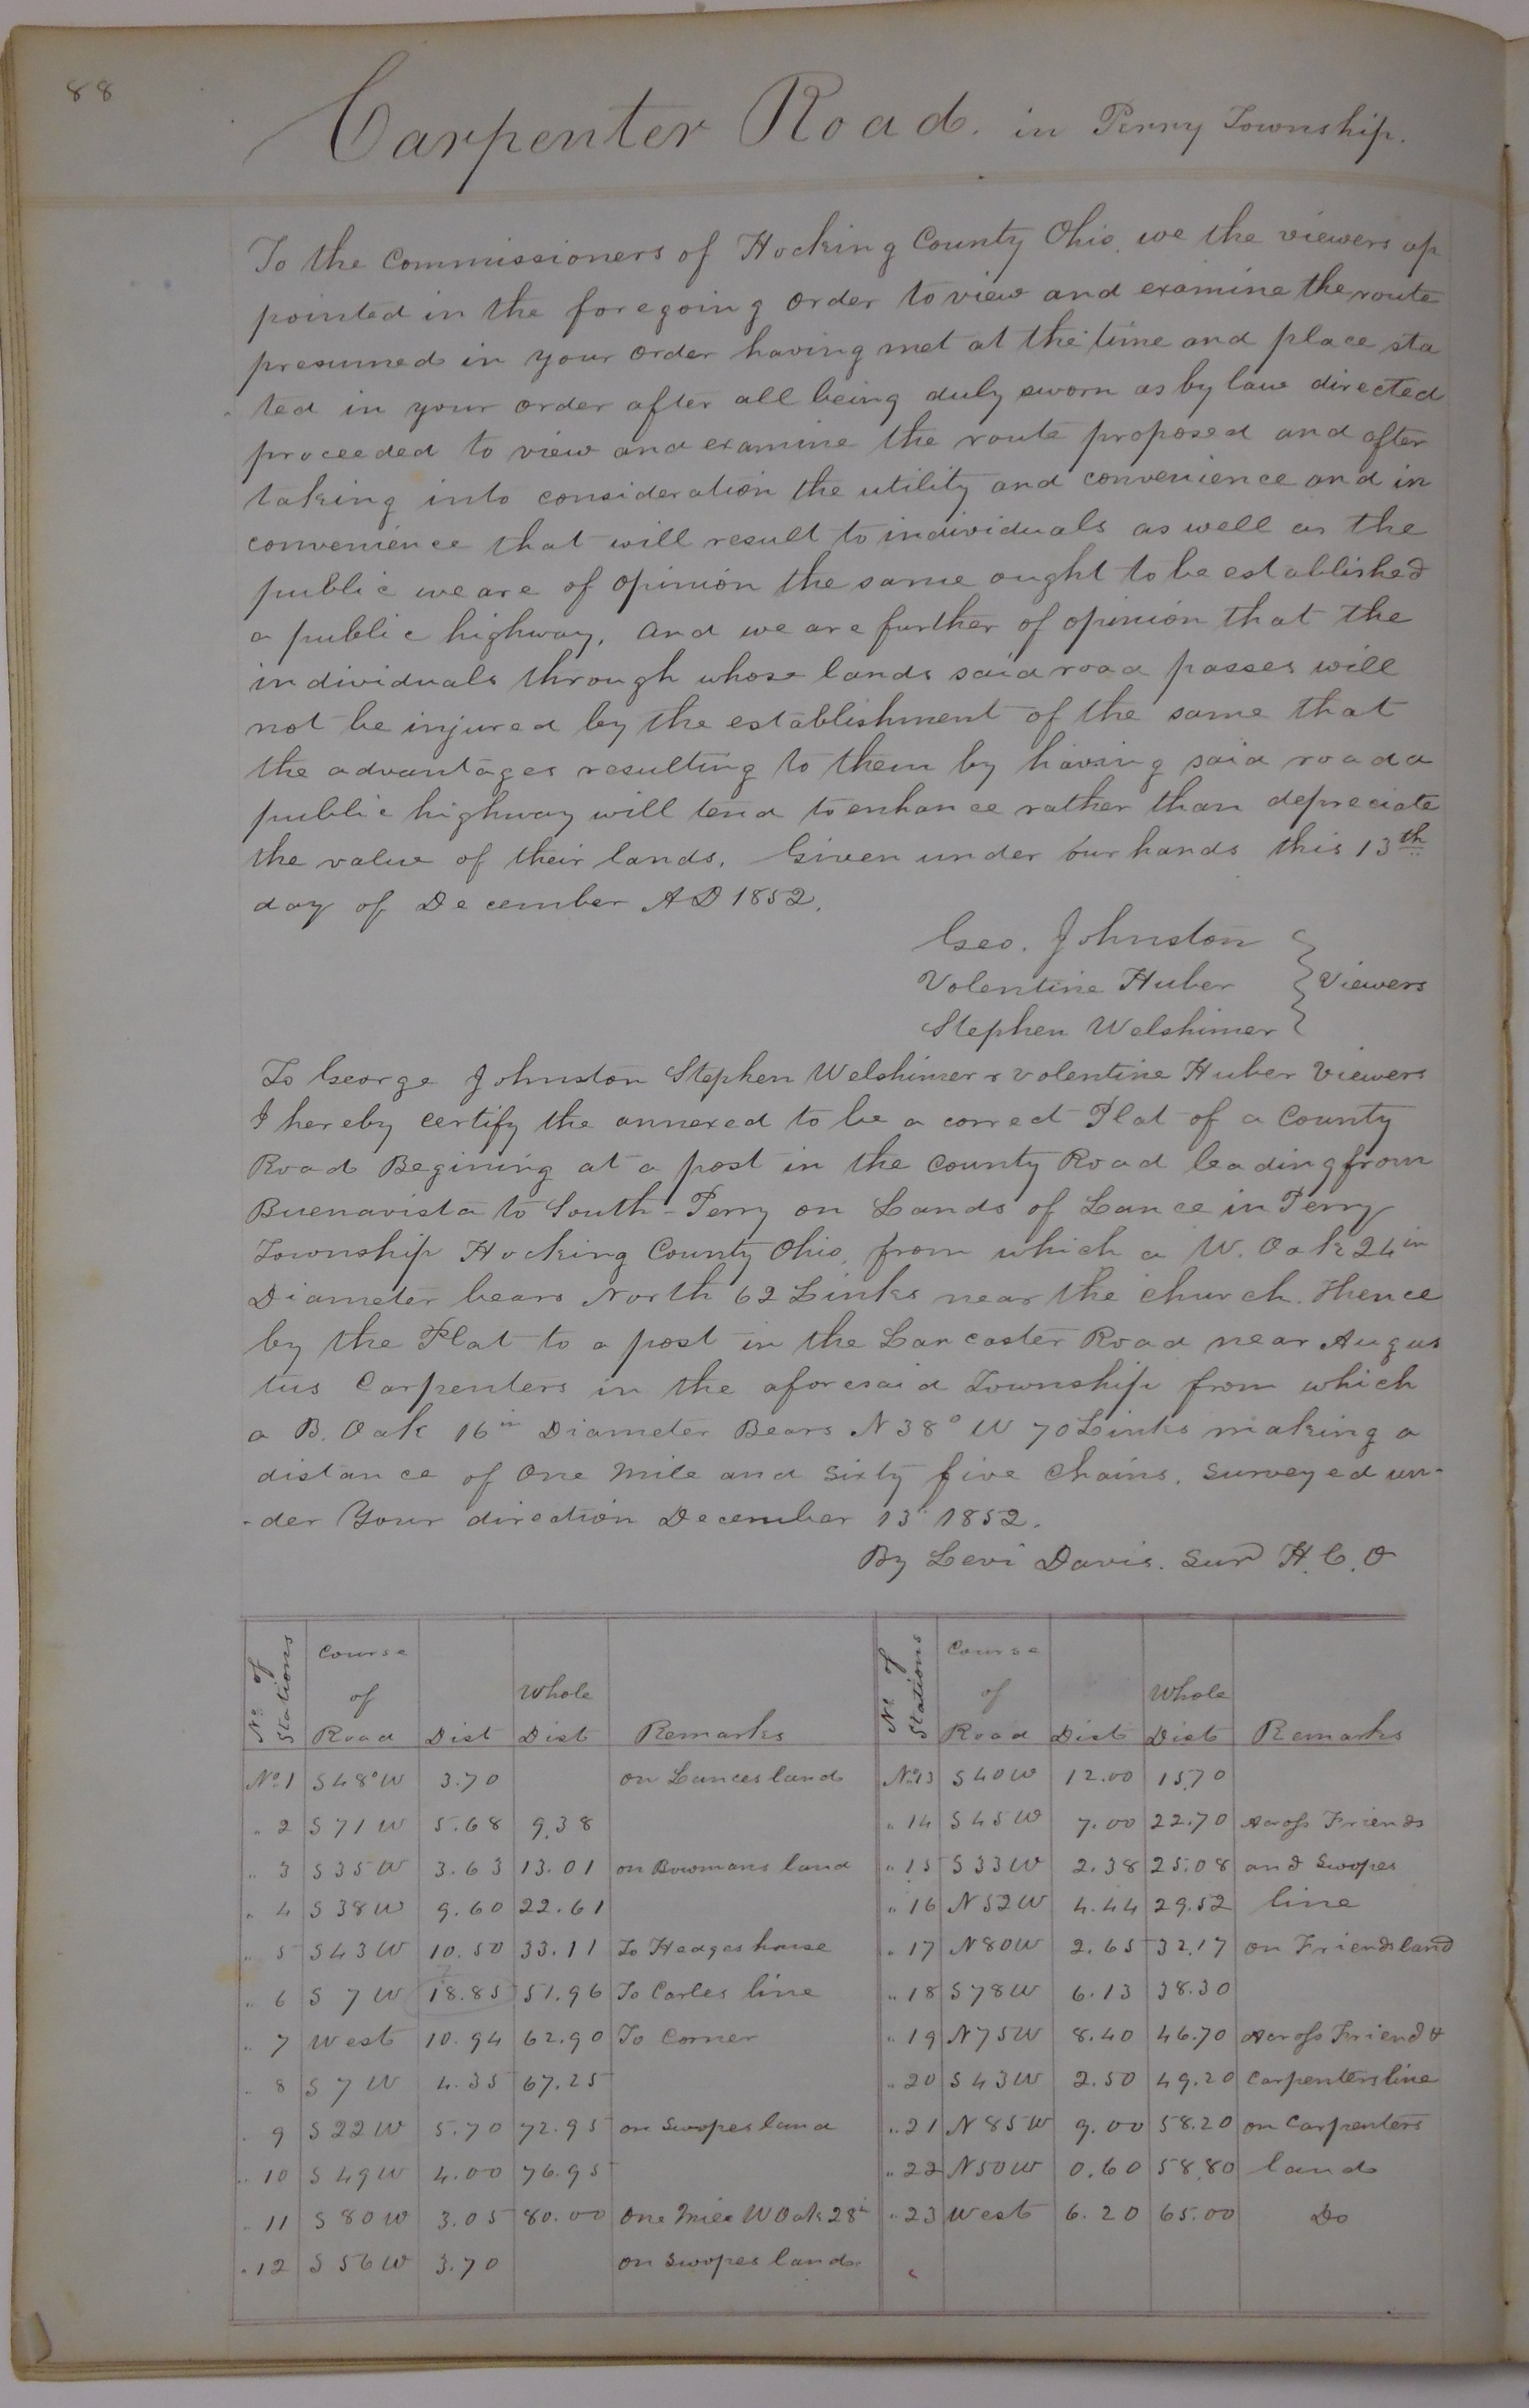 88
Carpenter Road. in Perry Township.
To the Commissioners of Hocking County Ohio. we the viewers ap
pointed in the foregoing order to view and examine the route
presumed in your order having met at the time and place sta
ted in your order after all being duly sworn as by law directed
proceeded to view and examine the route proposed and after
taking into consideration the utility and convenience and in
convenience that will result to individuals as well as the
public we are of opinion the same ought to be established
a public highway, and we are further of opinion that the
individuals through whose lands said road passes will
not be injured by the establishment of the same that
the advantages resulting to them by having said road a
public highway will tend to enhance rather than depreciate
the value of their lands. Given under our hands this 13th
day of December AD 1852.
Geo. Johnston
Volentine Huber } Viewers
Stephen Welshimer
To George Johnston Stephen Welshimer & volentine Huber Viewers
I hereby certify the annexed to be a correct Plat of a County
Road Begining at a post in the County Road leading from
Buenavista to South-Perry on Lands of Lance in Perry
Township Hocking County Ohio, from which a W. Oak 24 in
Diameter bears North 62 Links near the church. Thence
by the Plat to a post in the Lancaster Road near Augus
tus Carpenters in the aforesaid Township from which
a B. Oak 16 in Diameter Bears N 38° W 70 Links making a
distance of One Mile and Sixty five Chains. Surveyed un-
-der Your direction December 13" 1852.
By Levi Davis. Surr H. C. O
No. of Stations Course of Road Dist Whole Dist Remarks No. of Stations Course of Road Dist Whole Dist Remarks
No. 1 S 48° W 3.70 on Lances land No. 13 S 40 W 12.00 15.70
" 2 S 71 W 5.68 9.38 " 14 S 45 W 7.00 22.70 Across Friends
" 3 S 35 W 3.63 13.01 on Bowmans land " 15 S 33 W 2.38 25.08 and Swopes
" 4 S 38 W 9.60 22.61 " 16 N 52 W 4.44 29.52 line
" 5 S 43 W 10.50 33.11 To Hedges house " 17 N 80 W 2.65 32.17 on Friends land
" 6 S 7 W 18.85 51.96 To Carles line " 18 S 78 W 6.13 38.30
" 7 West 10.94 62.90 To Corner " 19 N 75 W 8.40 46.70 Across Friend &
" 8 S 7 W 4.35 67.25 " 20 S 43 W 2.50 49.20 Carpenters line
" 9 S 22 W 5.70 72.95 on Swopes land " 21 N 85 W 9.00 58.20 on Carpenters
" 10 S 49 W 4.00 76.95 " 22 N 50 W 0.60 58.80 land
" 11 S 80 W 3.05 80.00 One Mile W Oak 28 in " 23 West 6.20 65.00 Do
" 12 S 56 W 3.70 on Swopes land